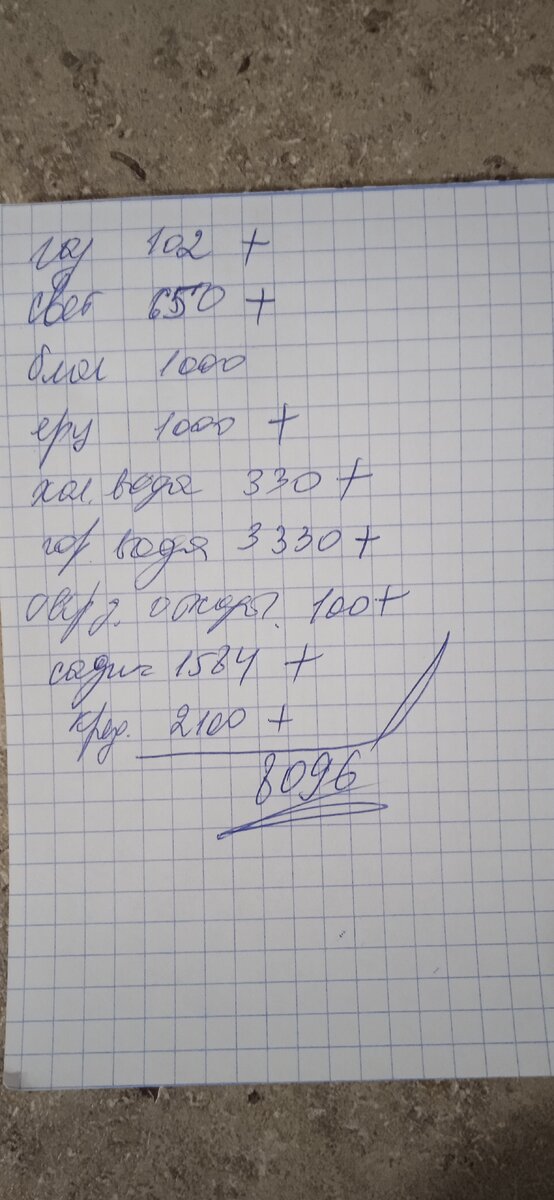 газ 102 +
свет 650 +
благ 1000
еру 1000 +
хол. вода 330 +
гор. вода 3330 +
тверд. отходы. 100+
садик 1584 +
кред. 2100 +
8096